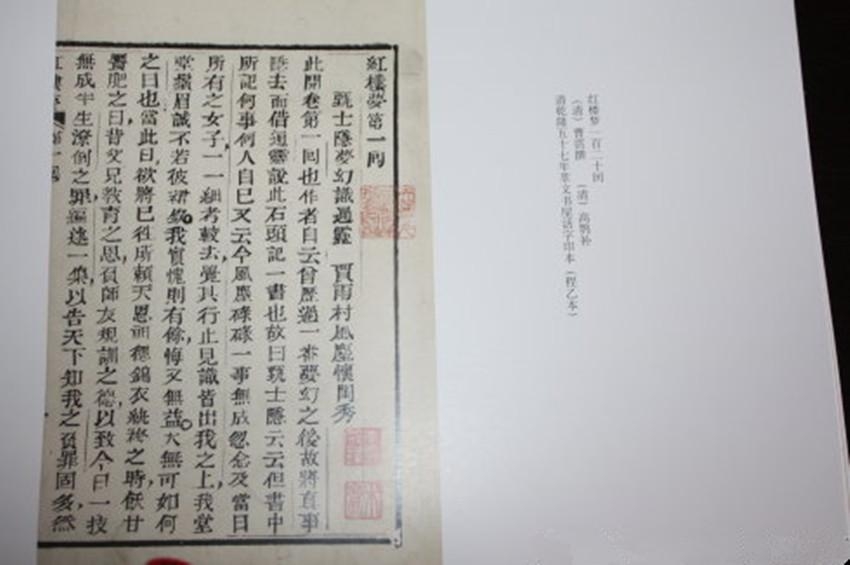 红楼梦一百二十回
（清）曹霑撰　（清）高鹗补
清乾隆五十七年萃文书屋活字印本（程乙本）
紅樓夢第一回
甄士隱夢幻識通靈　賈雨村風塵懷閨秀
此開卷第一回也作者自云曾歷過一番夢幻之後故將真事
隱去而借通靈說此石頭記一書也故曰甄士隱云云但書中
所記何事何人自己又云今風塵碌碌一事無成忽念及當日
所有之女子一一細考較去覺其行止見識皆出我之上我堂
堂鬚眉誠不若彼裙釵我實愧則有餘悔又無益大無可如何
之日也當此日欲將已往所賴天恩祖德錦衣紈袴之時飫甘
饜肥之日背父兄教育之恩負師友規訓之德以致今日一技
無成半生潦倒之罪編述一集以告天下知我之負罪固多然